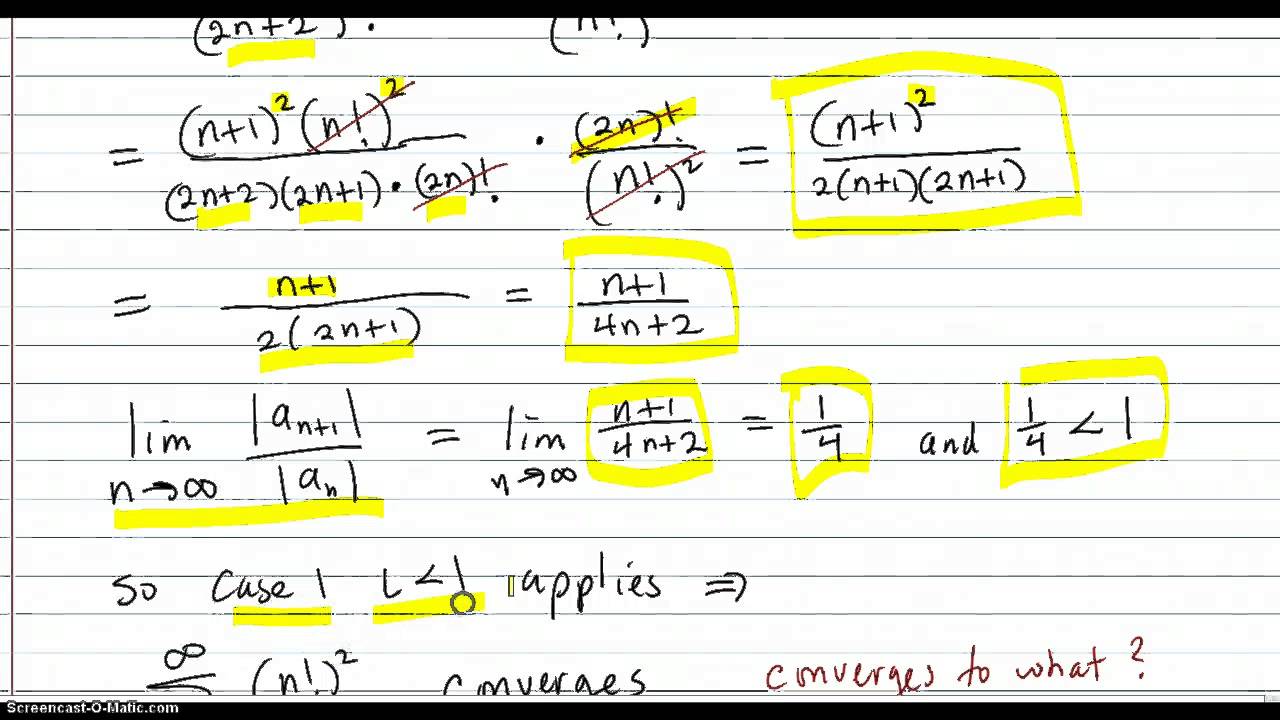 (2n+2)! (n!)
= (n+1)²(n!)² / (2n+2)(2n+1)·(2n)! · (2n)! / (n!)² = (n+1)² / 2(n+1)(2n+1)
= n+1 / 2(2n+1) = n+1 / 4n+2
lim n→∞ |aₙ₊₁| / |aₙ| = lim n→∞ n+1 / 4n+2 = 1/4 and 1/4 < 1
so case 1 L < 1 applies ⇒
∞ Σ (n!)² converges converges to what?
Screencast-O-Matic.com